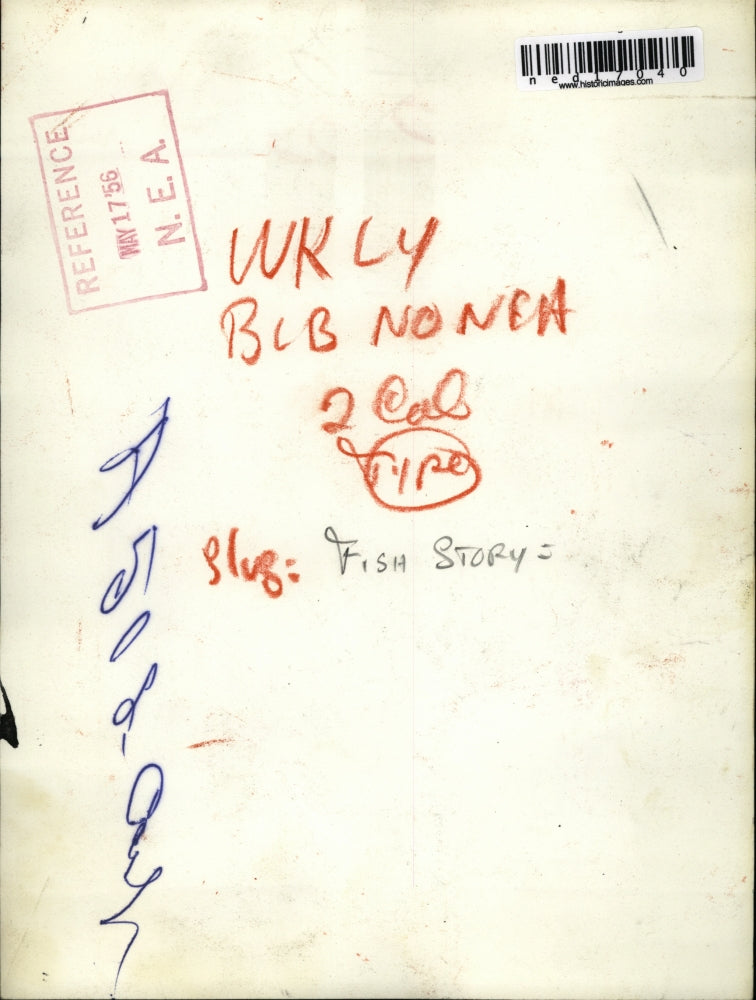 ned17040
www.historicimages.com
REFERENCE
MAY 17 '56
N.E.A.
WKLY
BCB NO NEA
2 Col
TYPE
Slug: FISH STORY =